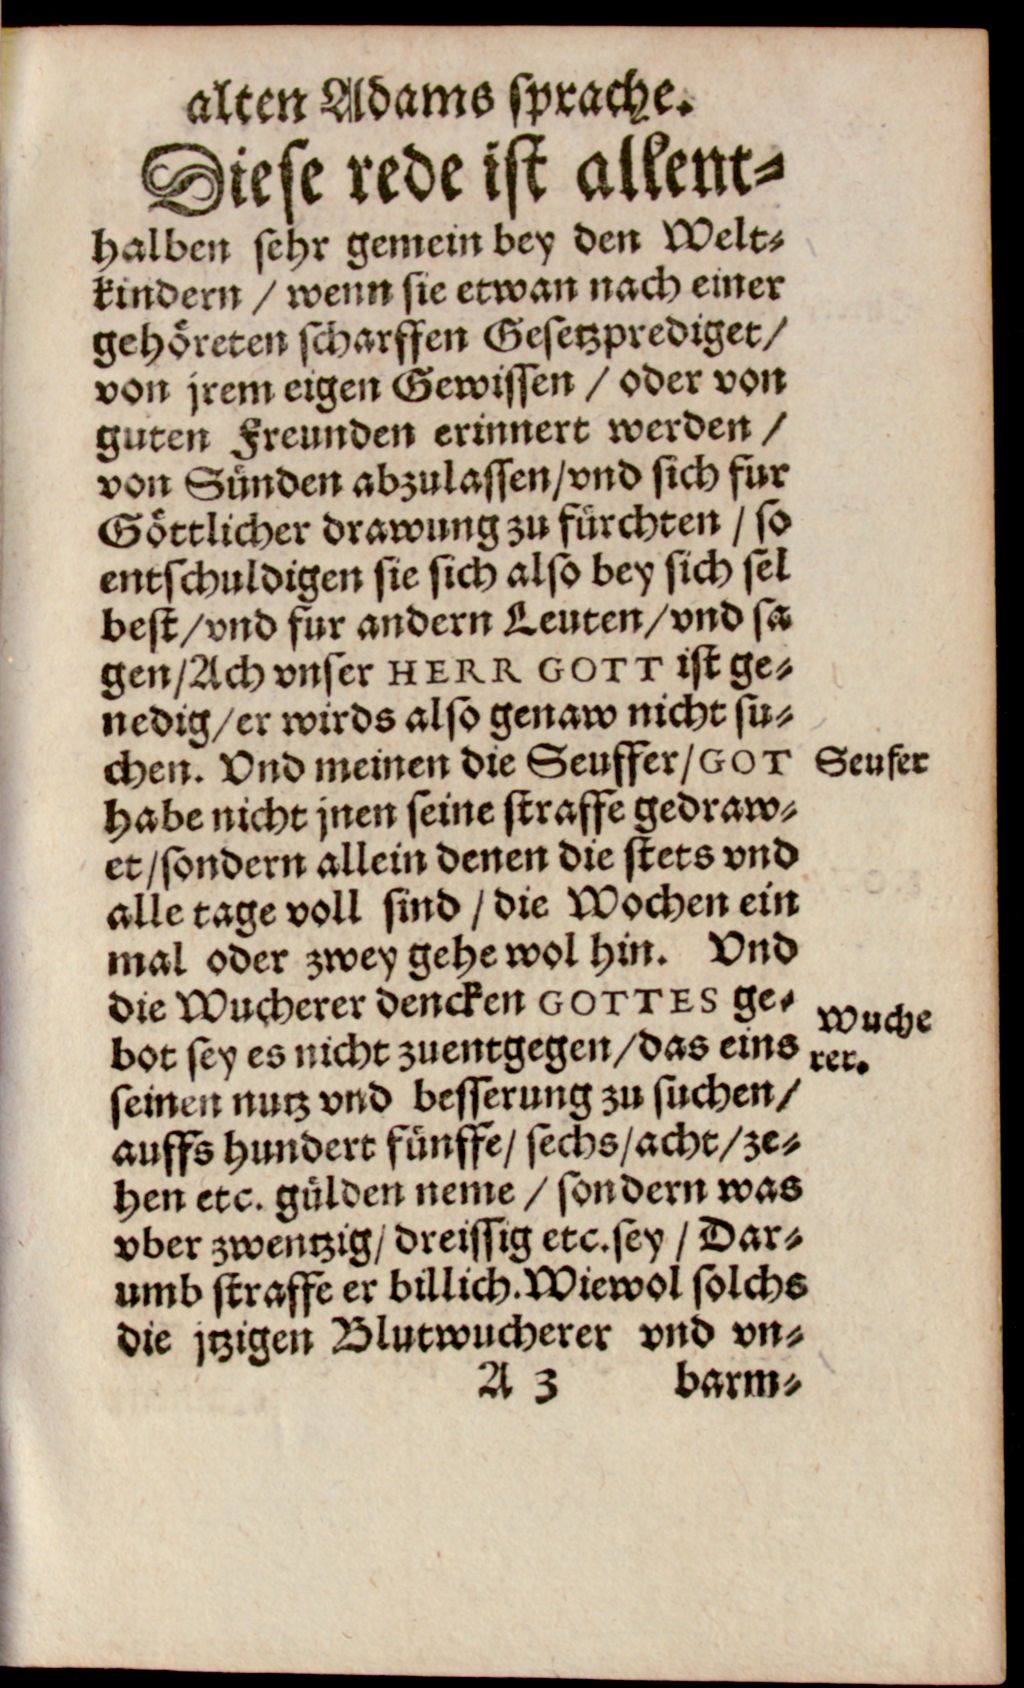 alten Adams sprache.
Diese rede ist allent-
halben sehr gemein bey den Welt-
kindern / wenn sie etwan nach einer
gehöreten scharffen Gesetzprediget/
von jrem eigen Gewissen / oder von
guten Freunden erinnert werden /
von Sünden abzulassen/vnd sich fur
Göttlicher drawung zu fürchten / so
entschuldigen sie sich also bey sich sel
best/vnd fur andern Leuten/vnd sa
gen/Ach vnser HERR GOTT ist ge-
nedig/er wirds also genaw nicht su-
chen. Vnd meinen die Seuffer/GOT
Seufer
habe nicht jnen seine straffe gedraw-
et/sondern allein denen die stets vnd
alle tage voll sind / die Wochen ein
mal oder zwey gehe wol hin. Vnd
die Wucherer dencken GOTTES ge-
Wuche
bot sey es nicht zuentgegen/das eins
rer.
seinen nutz vnd besserung zu suchen/
auffs hundert fünffe/ sechs/acht/ze-
hen etc. gülden neme / sondern was
vber zwentzig/ dreissig etc.sey / Dar-
umb straffe er billich.Wiewol solchs
die jtzigen Blutwucherer vnd vn-
A 3 barm-